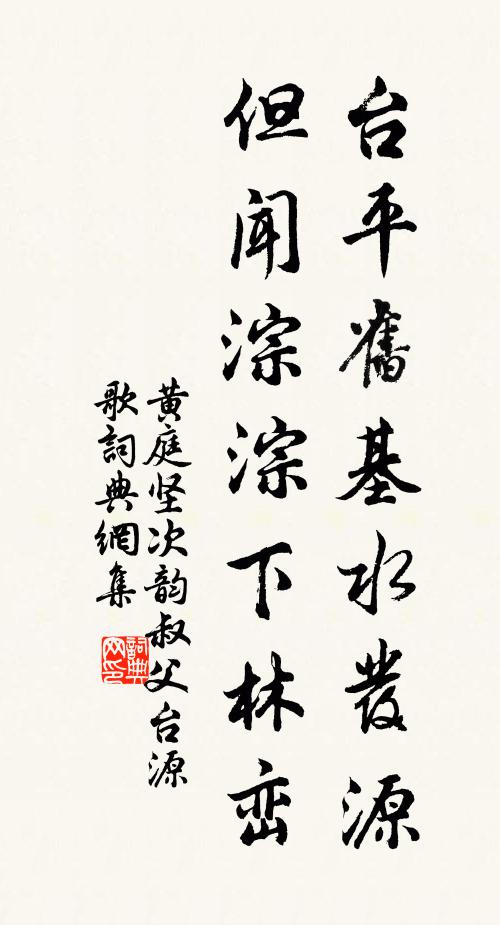 台平舊基水發源
但闻淙淙下林峦
黄庭坚次韵叔父台源
歌詞典網集
詞典
网印